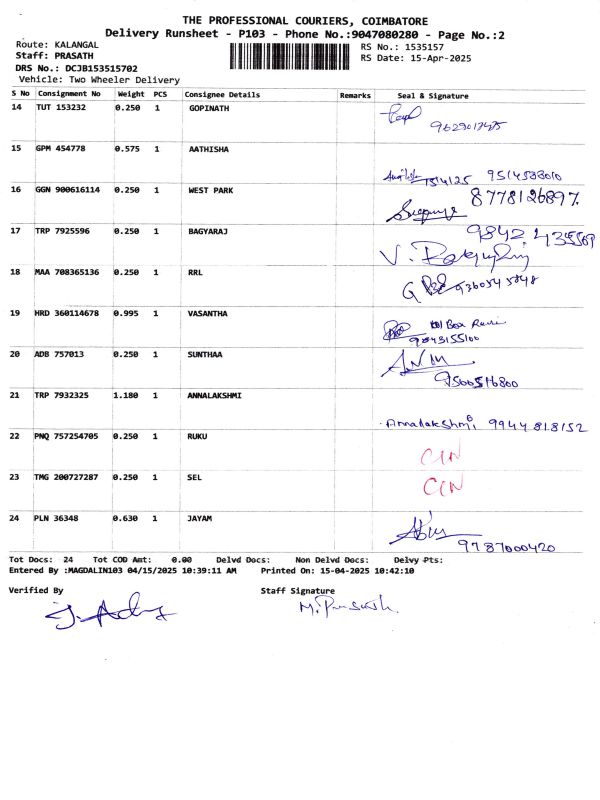 THE PROFESSIONAL COURIERS, COIMBATORE
Delivery Runsheet - P103 - Phone No.:9047080280 - Page No.:2
Route: KALANGAL
Staff: PRASATH
DRS No.: DCJB153515702
Vehicle: Two Wheeler Delivery
RS No.: 1535157
RS Date: 15-Apr-2025
S No Consignment No Weight PCS Consignee Details Remarks Seal & Signature
14 TUT 153232 0.250 1 GOPINATH
15 GPM 454778 0.575 1 AATHISHA
15/4/25
16 GGN 900616114 0.250 1 WEST PARK 8778126897.
17 TRP 7925596 0.250 1 BAGYARAJ
18 MAA 708365136 0.250 1 RRL
19 HRD 360114678 0.995 1 VASANTHA
20 ADB 757013 0.250 1 SUNTHAA
9500516800
21 TRP 7932325 1.180 1 ANNALAKSHMI
Annalakshmi 9944818152
22 PNQ 757254705 0.250 1 RUKU
23 TMG 200727287 0.250 1 SEL
24 PLN 36348 0.630 1 JAYAM
9787000420
Tot Docs: 24 Tot COD Amt: 0.00 Delvd Docs: Non Delvd Docs: Delvy Pts:
Entered By :MAGDALIN103 04/15/2025 10:39:11 AM Printed On: 15-04-2025 10:42:10
Verified By Staff Signature
M. Prasath